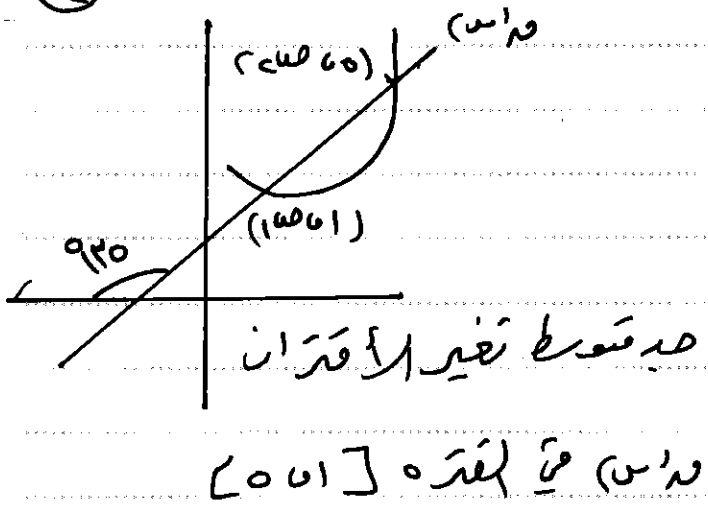 ق(س)
(٥ ، ص٢)
(١ ، ص١)
١٣٥°
جد متوسط تغير الأقتران
ق(س) في الفترة [١ ، ٥]